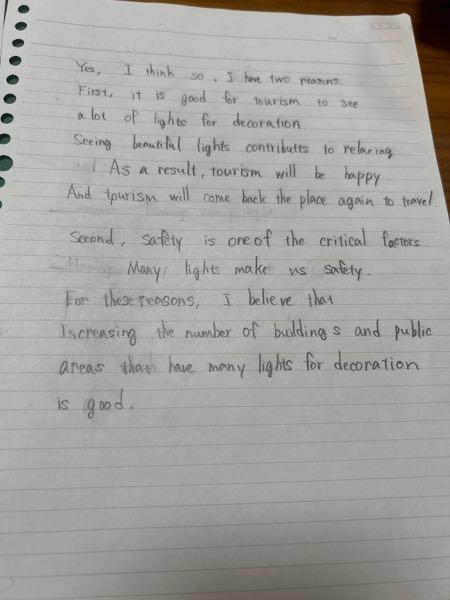 Yes, I think so. I have two reasons.
First, it is good for tourism to see
a lot of lights for decoration
Seeing beautiful lights contributes to relaxing
As a result, tourism will be happy
And tourism will come back the place again to travel.
Second, safety is one of the critical factors.
Many lights make us safety.
For these reasons, I believe that
Increasing the number of buildings and public
areas that have many lights for decoration
is good.